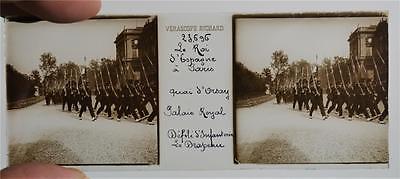 VERASCOPE RICHARD
23696
Le Roi
d'Espagne
à Paris
quai d'Orsay
Palais Royal
Défilé d'Infanterie
Le Drapeau